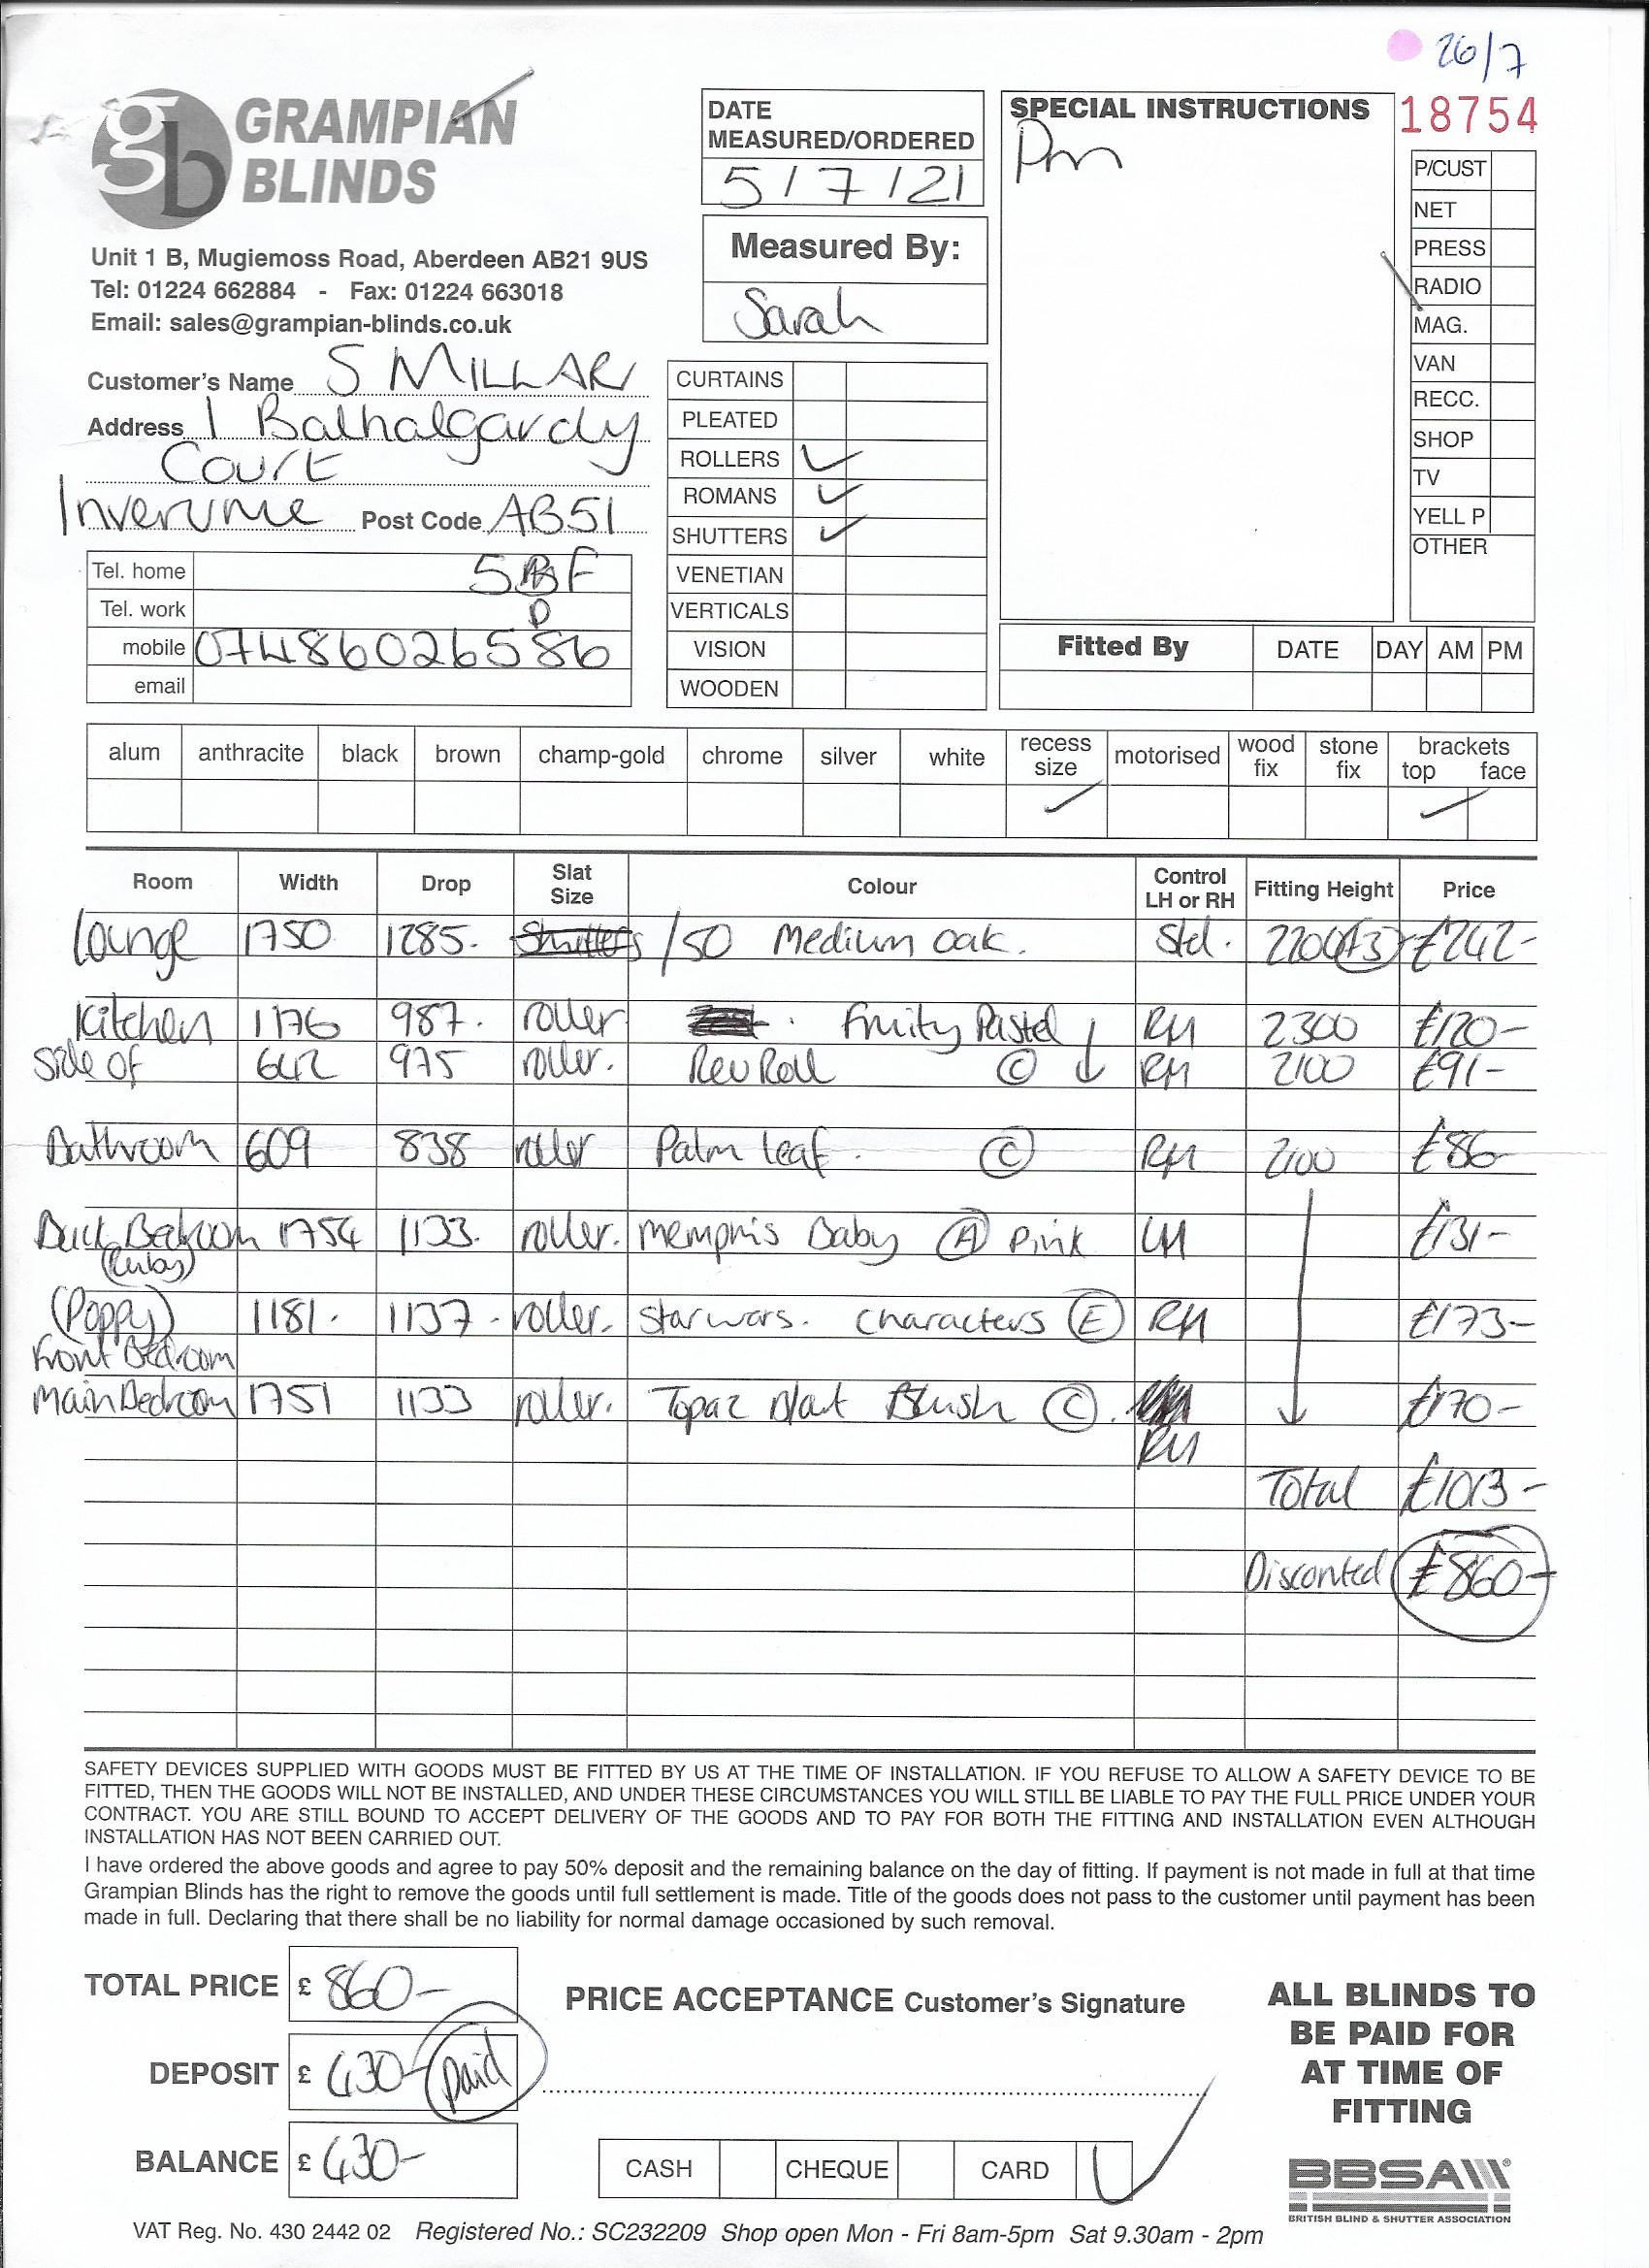 26/7
GRAMPIAN
BLINDS
Unit 1 B, Mugiemoss Road, Aberdeen AB21 9US
Tel: 01224 662884 - Fax: 01224 663018
Email: sales@grampian-blinds.co.uk
DATE
MEASURED/ORDERED
5/7/21
Measured By:
Sarah
SPECIAL INSTRUCTIONS
Pm
18754
P/CUST
NET
PRESS
RADIO
MAG.
VAN
RECC.
SHOP
TV
YELL P
OTHER
Customer's Name S MILLAR
Address 1 Balhalgardy
Court
Inverurie Post Code AB51
Tel. home 5 F
Tel. work D
mobile 07486026586
email
CURTAINS
PLEATED
ROLLERS ✓
ROMANS ✓
SHUTTERS ✓
VENETIAN
VERTICALS
VISION
WOODEN
Fitted By DATE DAY AM PM
alum anthracite black brown champ-gold chrome silver white recess size motorised wood fix stone fix brackets top face
✓ ✓
Room Width Drop Slat Size Colour Control LH or RH Fitting Height Price
Lounge 1750 1285. Shutters /50 Medium Oak. Std. 2200 (+3) £242-
Kitchen 1176 987. roller Fruity Pastel ↓ RH 2300 £120-
side of 642 975 roller. Rev Roll C RH 2100 £91-
Bathroom 609 838 roller Palm Leaf. C RH 2100 £86
Back Bedroom 1754 1133. roller. Memphis Baby A Pink LH £131-
(Ruby)
(Poppy) 1181. 1137. roller. Starwars. Characters E RH £173-
Front Bedroom
Main Bedroom 1751 1133 roller. Topaz Blush C. £170-
RH
Total £1013-
Disconted £860-
SAFETY DEVICES SUPPLIED WITH GOODS MUST BE FITTED BY US AT THE TIME OF INSTALLATION. IF YOU REFUSE TO ALLOW A SAFETY DEVICE TO BE
FITTED, THEN THE GOODS WILL NOT BE INSTALLED, AND UNDER THESE CIRCUMSTANCES YOU WILL STILL BE LIABLE TO PAY THE FULL PRICE UNDER YOUR
CONTRACT. YOU ARE STILL BOUND TO ACCEPT DELIVERY OF THE GOODS AND TO PAY FOR BOTH THE FITTING AND INSTALLATION EVEN ALTHOUGH
INSTALLATION HAS NOT BEEN CARRIED OUT.
I have ordered the above goods and agree to pay 50% deposit and the remaining balance on the day of fitting. If payment is not made in full at that time
Grampian Blinds has the right to remove the goods until full settlement is made. Title of the goods does not pass to the customer until payment has been
made in full. Declaring that there shall be no liability for normal damage occasioned by such removal.
TOTAL PRICE £ 860-
DEPOSIT £ 430- paid
BALANCE £ 430-
PRICE ACCEPTANCE Customer's Signature
CASH CHEQUE CARD ✓
ALL BLINDS TO
BE PAID FOR
AT TIME OF
FITTING
BBSA
BRITISH BLIND & SHUTTER ASSOCIATION
VAT Reg. No. 430 2442 02 Registered No.: SC232209 Shop open Mon - Fri 8am-5pm Sat 9.30am - 2pm